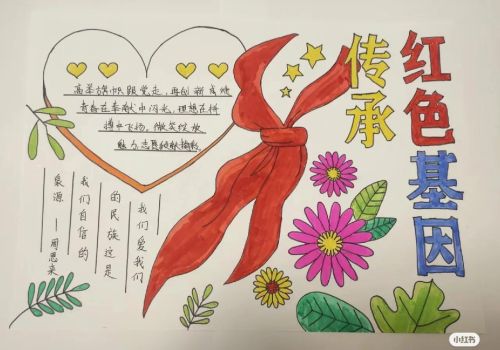 传承
红色基因
高举旗帜跟党走,再创新
青春在奉献中闪光,理想在拼
搏中飞扬,微笑绽放
魅力,志愿
我们爱我们
的民族这是
我们自信的
泉源—周恩来
小红书